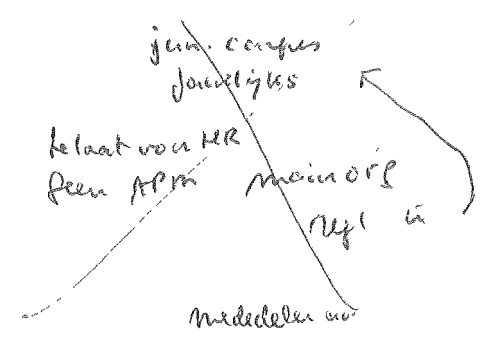 jun. campus
jaarlijks
te laat voor MR
geen APM
main org
in
mededelen